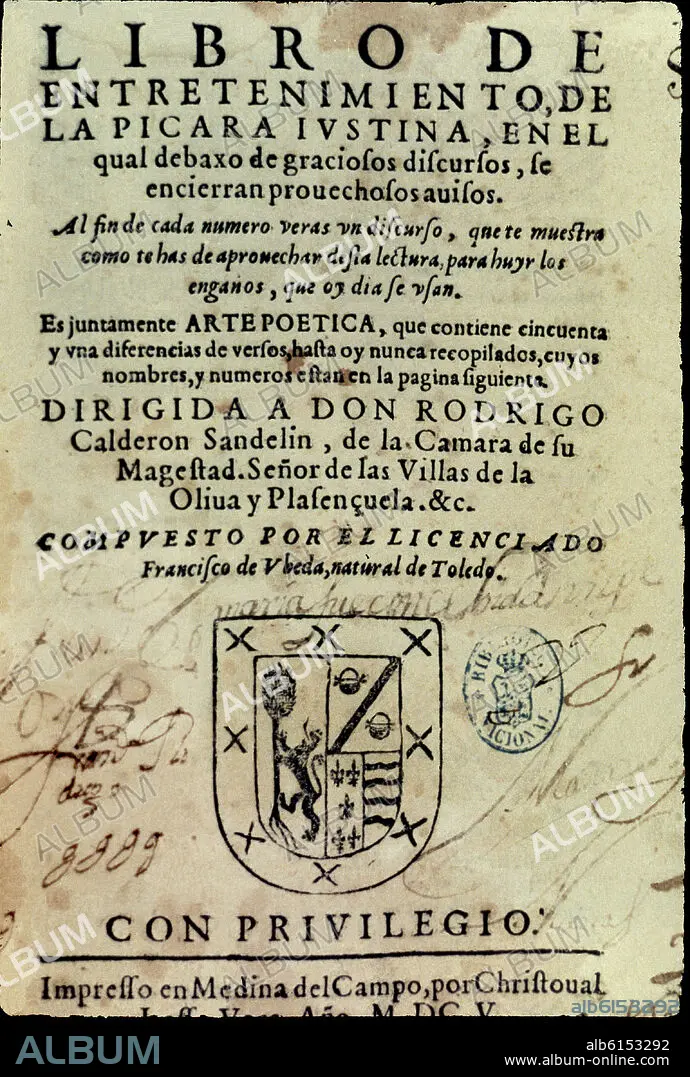 LIBRO DE
ENTRETENIMIENTO, DE
LA PICARA IVSTINA, EN EL
qual debaxo de graciosos discursos, se
encierran prouechosos auisos.
Al fin de cada numero veras vn discurso, que te muestra
como te has de aprouechar desta lectura, para huyr los
engaños, que oy dia se vsan.
Es juntamente ARTE POETICA, que contiene cincuenta
y vna diferencias de versos, hasta oy nunca recopilados, cuyos
nombres, y numeros estan en la pagina siguiente.
DIRIGIDA A DON RODRIGO
Calderon Sandelin, de la Camara de su
Magestad. Señor de las Villas de la
Oliua y Plasençuela. &c.
COMPVESTO POR EL LICENCIADO
Francisco de Vbeda, natural de Toledo.
CON PRIVILEGIO.
Impresso en Medina del Campo, por Christoual
Año, M. DC. V.
ALBUM
alb6153292
alb6153292
www.album-online.com